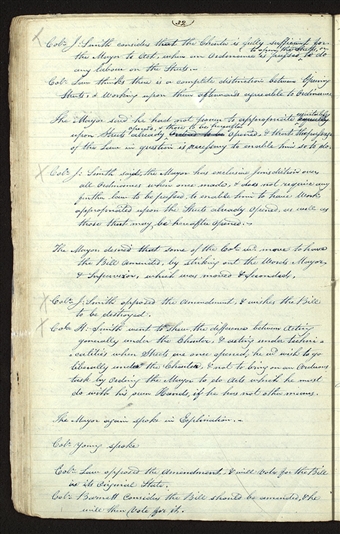 52
Colr. J. Smith considers that the Charter is fully sufficient for
to open the streets, or
the Mayor to Act, when an Ordinance is passed to do
any labour on the Streets.
Colr. Law thinks there is a complete distinction between Opening
Streets, & Working upon them afterwards agreeable to Ordinance
The Mayor said he had not power to appropriate
upon Streets already opened, & those to be opened, & thinks the passage
of the Law in question is necessary to enable him so to do.
Colr. J. Smith said, the Mayor has exclusive jurisdiction over
all Ordinances when once made, & does not require any
further law to be passed, to enable him to have Work
appropriated upon the Streets already Opened, as well as
those that may be hereafter opened.
The Mayor desired that some of the Colrs. wd. move to have
the Bill Amended, by striking out the Words Mayor,
& Supervisor, which was moved & seconded.
Colr. J. Smith opposed the Amendment, & wishes the Bill
to be destroyed.
Colr. H. Smith went to Shew the difference between Acting
generally under the Charter, & acting under techni-
calities when Streets are once opened, he wd. wish to go
liberally under the Charter, & not to bring on an Arduous
task by Ordering the Mayor to do Acts which he must
do with his Own Hands, if he has not other means.
The Mayor again spoke in Explination.-
Colr. Young spoke
Colr. Law opposed the Amendment, & will Vote for the Bill
in its Original State.
Colr. Barnett Considers the Bill should be amended, & he
will then Vote for it.